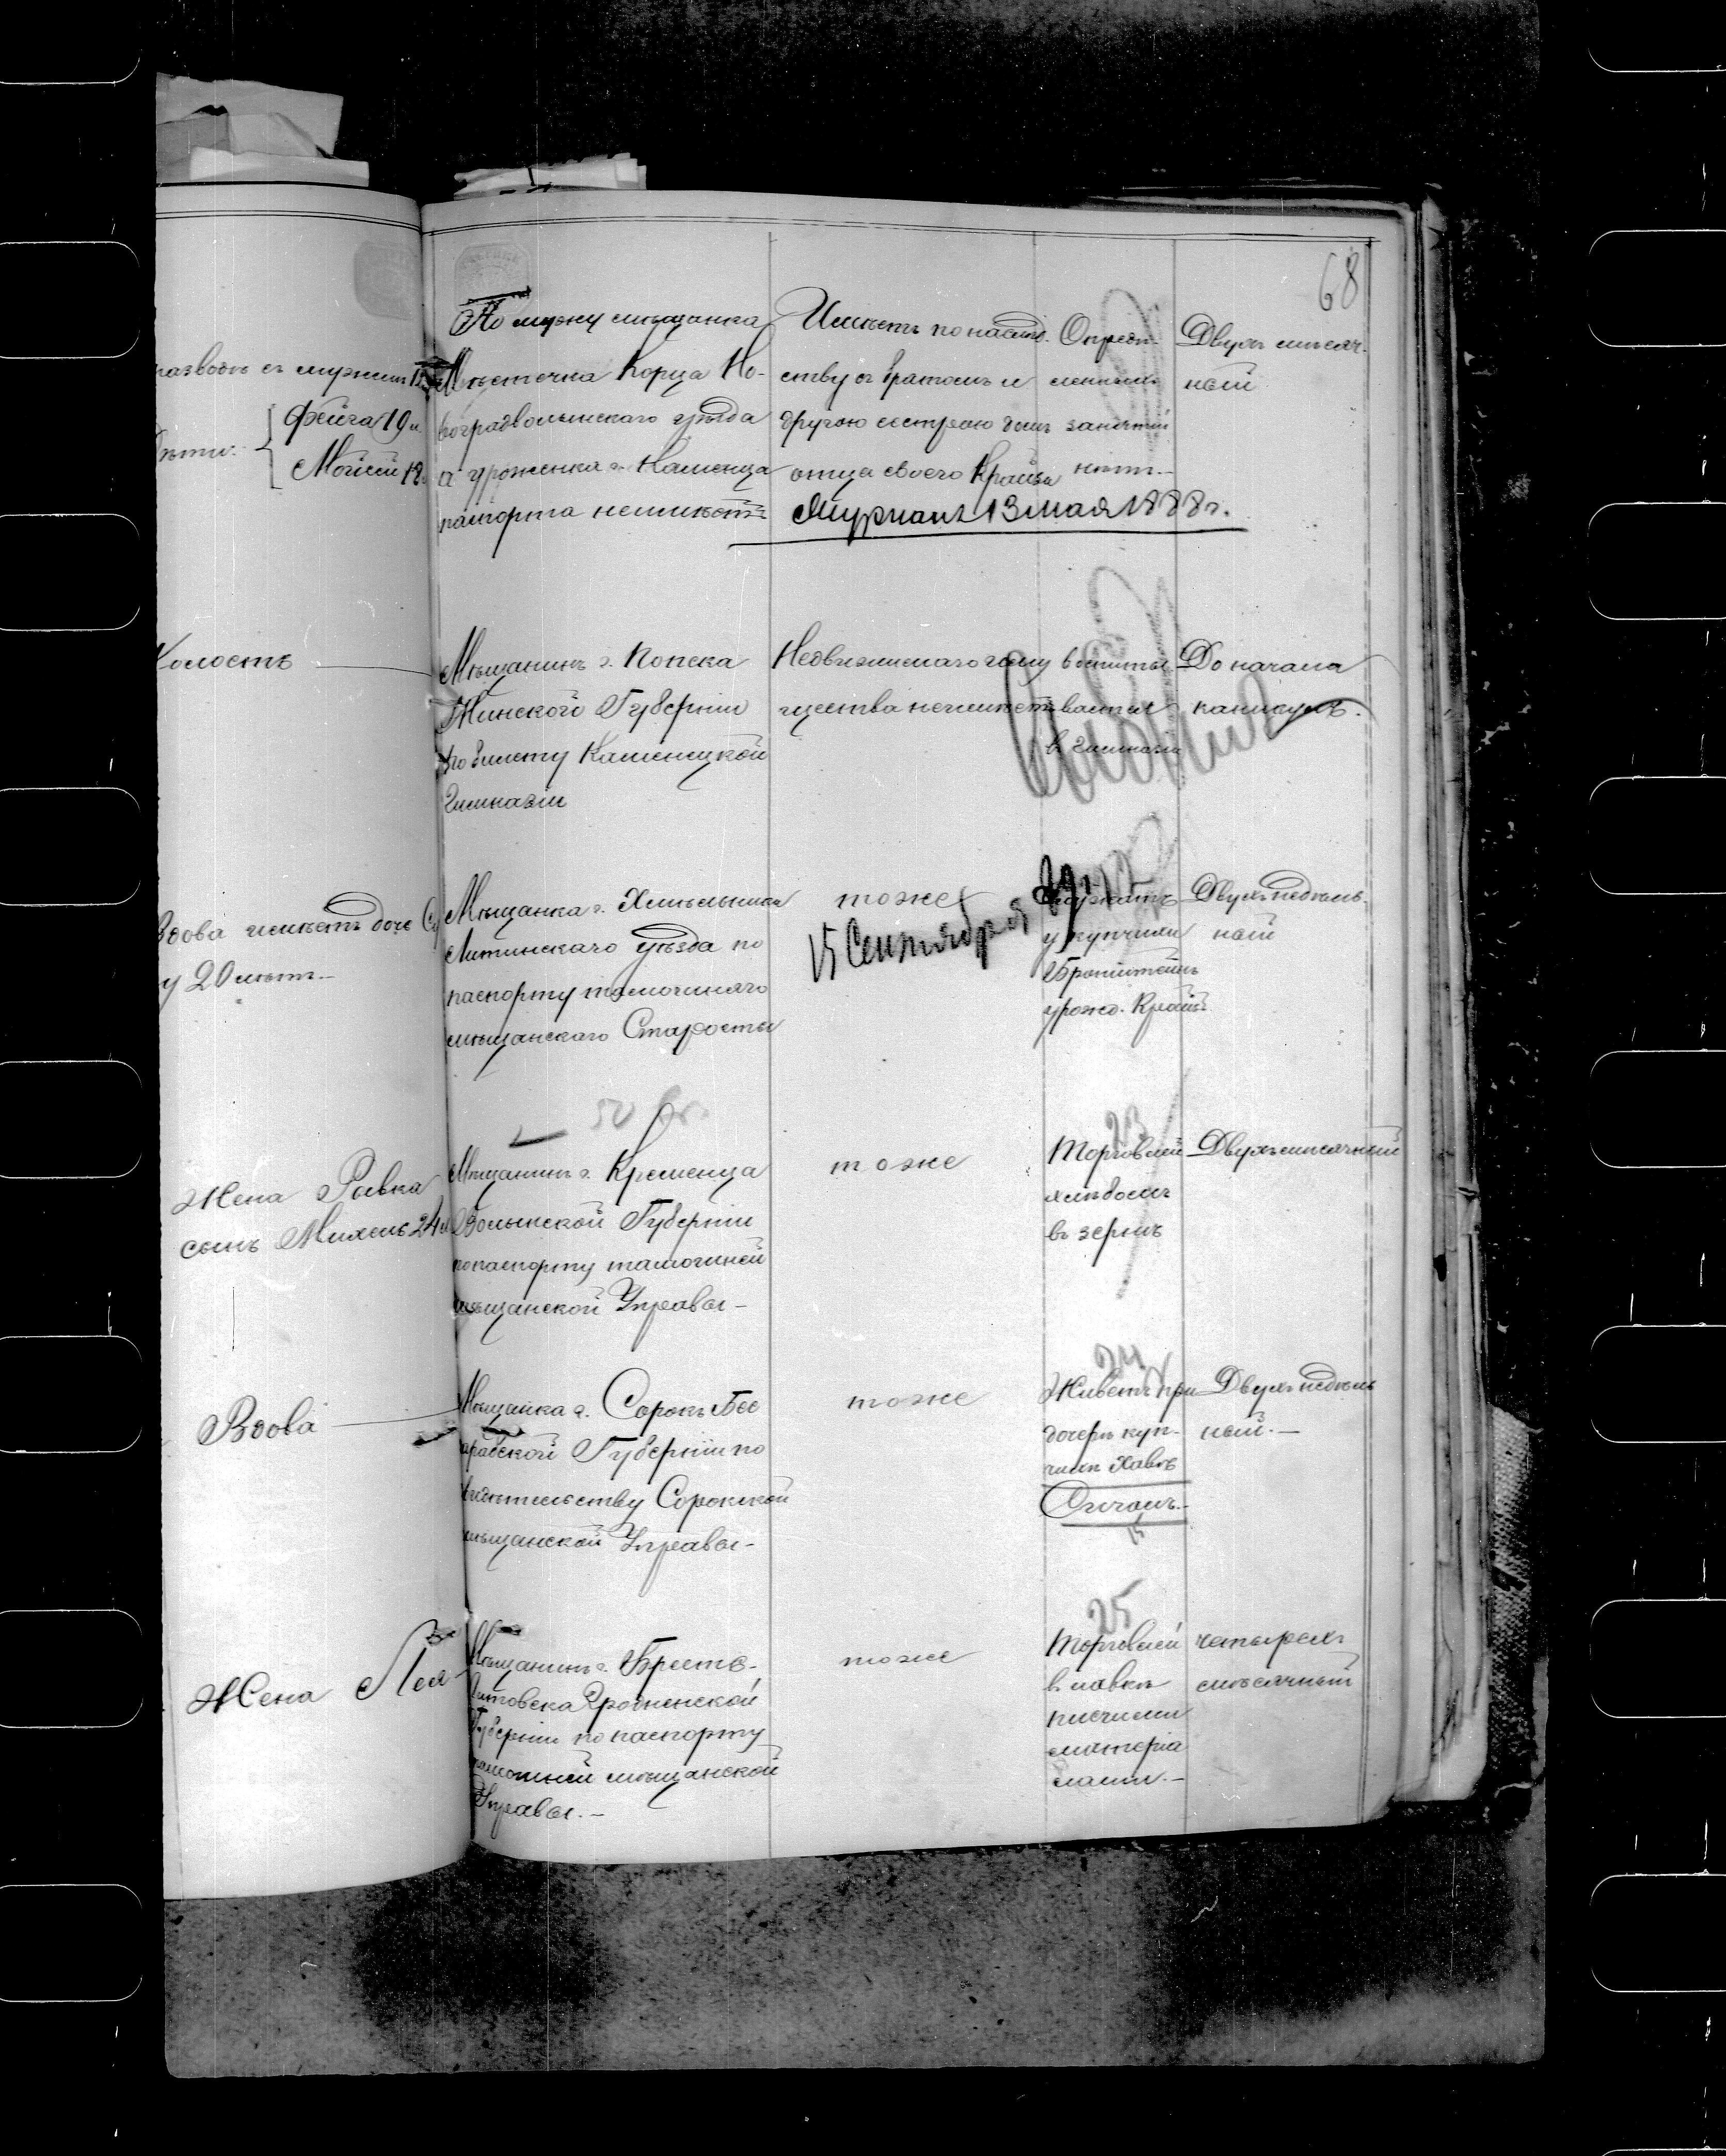 68
разводѣ съ мужемъ
Фейга 19 л.
Мойсей 18
По мужу мѣщанка
Мѣстечка Корца Но-
воградволынскаго уѣзда
а уроженка г. Каменца
паспорта неимѣетъ
Имѣетъ по наслѣд.
ству съ братомъ и
другою сестрою домъ
отца своего Крайза
Журналъ 13 мая 1888 г.
Опредѣ-
ленныхъ
занятій
нѣтъ.
Двухъ мѣсяч.
ный
Холостъ
Мѣщанинъ г.
Минской Губерніи
по билету Каменецкой
Гимназіи
Недвижимаго иму
щества неимѣетъ
воспиты
вается
в гимназіи
До начала
каникулъ.
Вдова имѣетъ дочь
у 20 лѣтъ.
Мѣщанка г. Хмѣльника
Литинскаго уѣзда по
паспорту тамошняго
мѣщанскаго Старосты
тоже
15 Сентября
Служитъ
у купчихи
Бронштейнъ
урожд. Крайзъ
Двухънедѣль.
ный
50
Жена Ривка
сынъ Михель 24 л
Мѣщанинъ г. Кременца
Волынской Губерніи
по паспорту тамошней
мѣщанской Управы -
тоже
23
Торговлей
хлѣбомъ
въ зернѣ
Двухъмѣсячный
Вдова
Мѣщанка г. Сорокъ Бес
арабской Губерніи по
свидѣтельству Сорокской
мѣщанской Управы -
тоже
24
Живетъ при
дочерѣ куп-
чихѣ Хавѣ
Двухъ недѣль
ный. -
Жена Лея
Мѣщанинъ г. Брестъ-
Литовска Гродненской
Губерніи по паспорту
тамошней мѣщанской
Управы. -
тоже
25
Торговлей
въ лавкѣ
писчими
матеріа
лами. -
четырехъ
мѣсячный